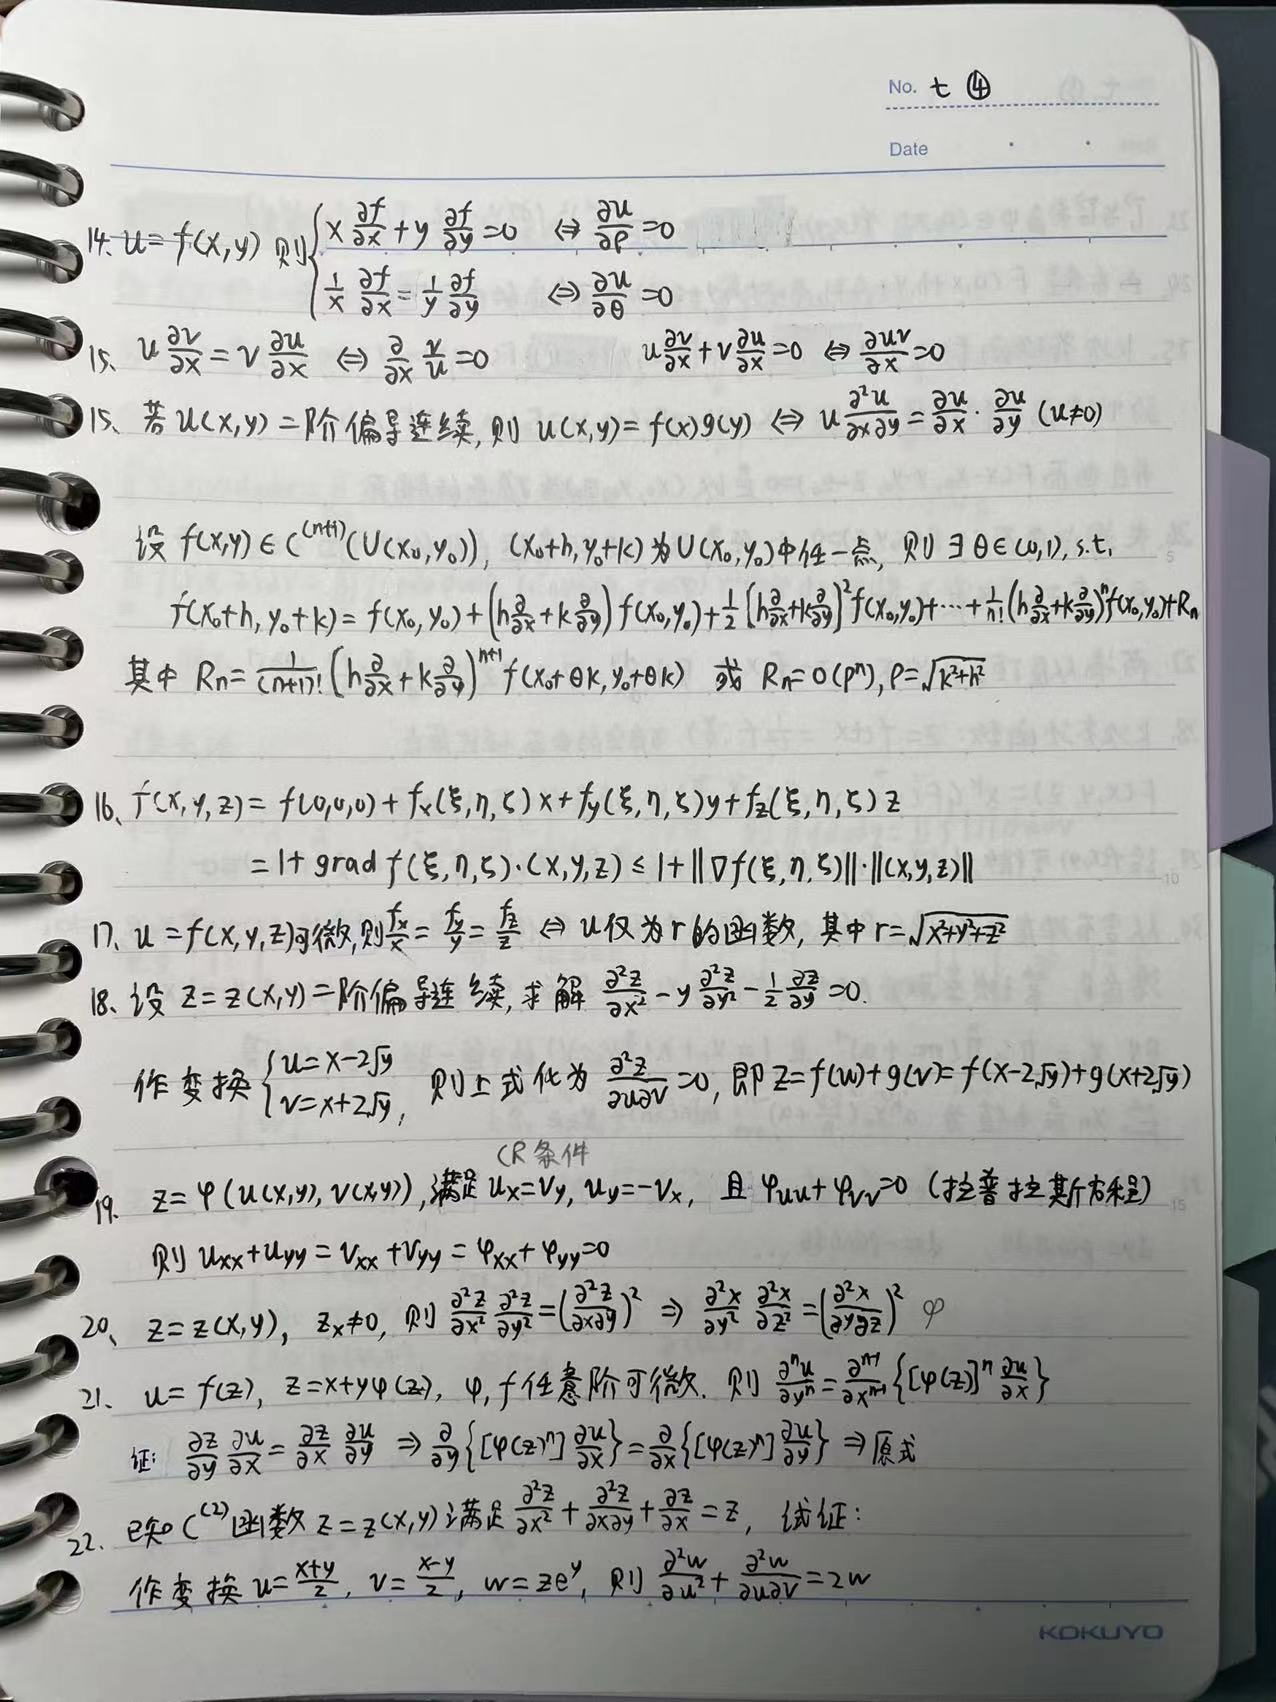 No. 七 ④
Date
14. u=f(x,y) 则 { x ∂f/∂x + y ∂f/∂y =0 ⇔ ∂u/∂ρ =0
1/x ∂f/∂x = 1/y ∂f/∂y ⇔ ∂u/∂θ =0
15、 u ∂v/∂x = v ∂u/∂x ⇔ ∂/∂x v/u =0 u ∂v/∂x + v ∂u/∂x =0 ⇔ ∂uv/∂x =0
15、 若 u(x,y) 二阶偏导连续, 则 u(x,y)=f(x)g(y) ⇔ u ∂²u/∂x∂y = ∂u/∂x · ∂u/∂y (u≠0)
设 f(x,y)∈C⁽ⁿ⁺¹⁾(U(x₀,y₀)), (x₀+h,y₀+k)为U(x₀,y₀)中任一点, 则 ∃θ∈(0,1), s.t.
f(x₀+h,y₀+k)=f(x₀,y₀)+(h ∂/∂x + k ∂/∂y) f(x₀,y₀)+ 1/2 (h ∂/∂x + k ∂/∂y)² f(x₀,y₀)+⋯+ 1/n! (h ∂/∂x + k ∂/∂y)ⁿ f(x₀,y₀)+Rn
其中 Rn= 1/(n+1)! (h ∂/∂x + k ∂/∂y)ⁿ⁺¹ f(x₀+θk,y₀+θk) 或 Rn=o(ρⁿ), ρ=√(k²+h²)
16、 f(x,y,z)=f(0,0,0)+fx(ξ,η,ζ)x+fy(ξ,η,ζ)y+fz(ξ,η,ζ)z
=1+grad f(ξ,η,ζ)·(x,y,z) ≤ 1+‖∇f(ξ,η,ζ)‖·‖(x,y,z)‖
17、 u=f(x,y,z)可微,则 fx/x = fy/y = fz/z ⇔ u仅为r的函数, 其中r=√(x²+y²+z²)
18、 设 z=z(x,y)二阶偏导连续, 求解 ∂²z/∂x² - y ∂²z/∂y² - 1/2 ∂z/∂y =0.
作变换 { u=x-2√y
v=x+2√y , 则上式化为 ∂²z/∂u∂v =0, 即 z=f(u)+g(v)=f(x-2√y)+g(x+2√y)
CR条件
19、 z=φ(u(x,y),v(x,y)),满足 ux=vy, uy=-vx, 且 φuu+φvv=0 (拉普拉斯方程)
则 uxx+uyy=vxx+vyy=φxx+φyy=0
20、 z=z(x,y), zx≠0, 则 ∂²z/∂x² ∂²z/∂y² = (∂²z/∂x∂y)² ⇒ ∂²x/∂y² ∂²x/∂z² = (∂²x/∂y∂z)² φ
21、 u=f(z), z=x+yφ(z), φ,f任意阶可微. 则 ∂ⁿu/∂yⁿ = ∂ⁿ⁻¹/∂xⁿ⁻¹ {[φ(z)]ⁿ ∂u/∂x}
证: ∂z/∂y ∂u/∂x = ∂z/∂x ∂u/∂y ⇒ ∂/∂y {[φ(z)ⁿ] ∂u/∂x} = ∂/∂x {[φ(z)ⁿ] ∂u/∂y} ⇒ 原式
22. 已知 C⁽²⁾函数 z=z(x,y)满足 ∂²z/∂x² + ∂²z/∂x∂y + ∂z/∂x = z, 试证:
作变换 u= x+y/2, v= x-y/2, w=zeʸ, 则 ∂²w/∂u² + ∂²w/∂u∂v =2w
KOKUYO